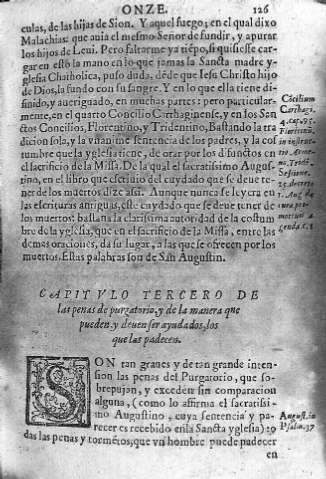 ONZE. 126
culas, de las hijas de Sion. Y aquel fuego; en el qual dixo
Malachias: que auia el mesmo Señor de fundir, y apurar
los hijos de Leui. Pero faltarme ya tiẽpo, si quisiesse car
gar en esto la mano en lo que jamas la Sancta madre y-
glesia Chatholica, puso duda, dẽde que Iesu Christo hijo
de Dios, la fundo con su sangre. Y en lo que ella tiene di-
finido, y aueriguado, en muchas partes: pero particular-
mente, en el quarto Concilio Carthaginense, y en los San
ctos Concilios, Florentino, y Tridentino, Bastando la tra
dicion sola, y la vnanime sentencia de los padres, y la cos
tumbre que la yglesia tiene, de orar por los difunctos en
el sacrificio de la Missa. De la qual el sacratissimo Augus-
tino, en el libro que escriuio del cuydado que se deue te-
ner de los muertos dize assi. Aunque nunca se leyera en
las escripturas antiguas, este cuydado que se deue tener de
los muertos: bastaua la clarissima autoridad de la costum
bre de la yglesia, que en el sacrificio de la Missa, entre las
demas oraciones, da su lugar, a las que se ofrecen por los
muertos. Estas palabras son de San Augustin.
Cõcilium
Carthagi.
4. cap. 95.
Florētinũ
Tridẽ-
Sessione.
25. decreto
Aug. de
cura pro
mortuis a
genda c. 1
CAPITVLO TERCERO DE
las penas de purgatorio, y de la manera que
pueden y deuen ser ayudados, los
que las padecen.
SON tan graues y de tan grande inten-
sion las penas del Purgatorio, que so-
brepujan, y exceden sin comparacion
alguna, (como lo afirma el sacratissi-
mo Augustino, cuya sentencia y pa-
recer es recebido en la Sancta yglesia) to
das las penas y tormẽtos, que vn hombre puede padecer
en
August. in
Psalm. 37